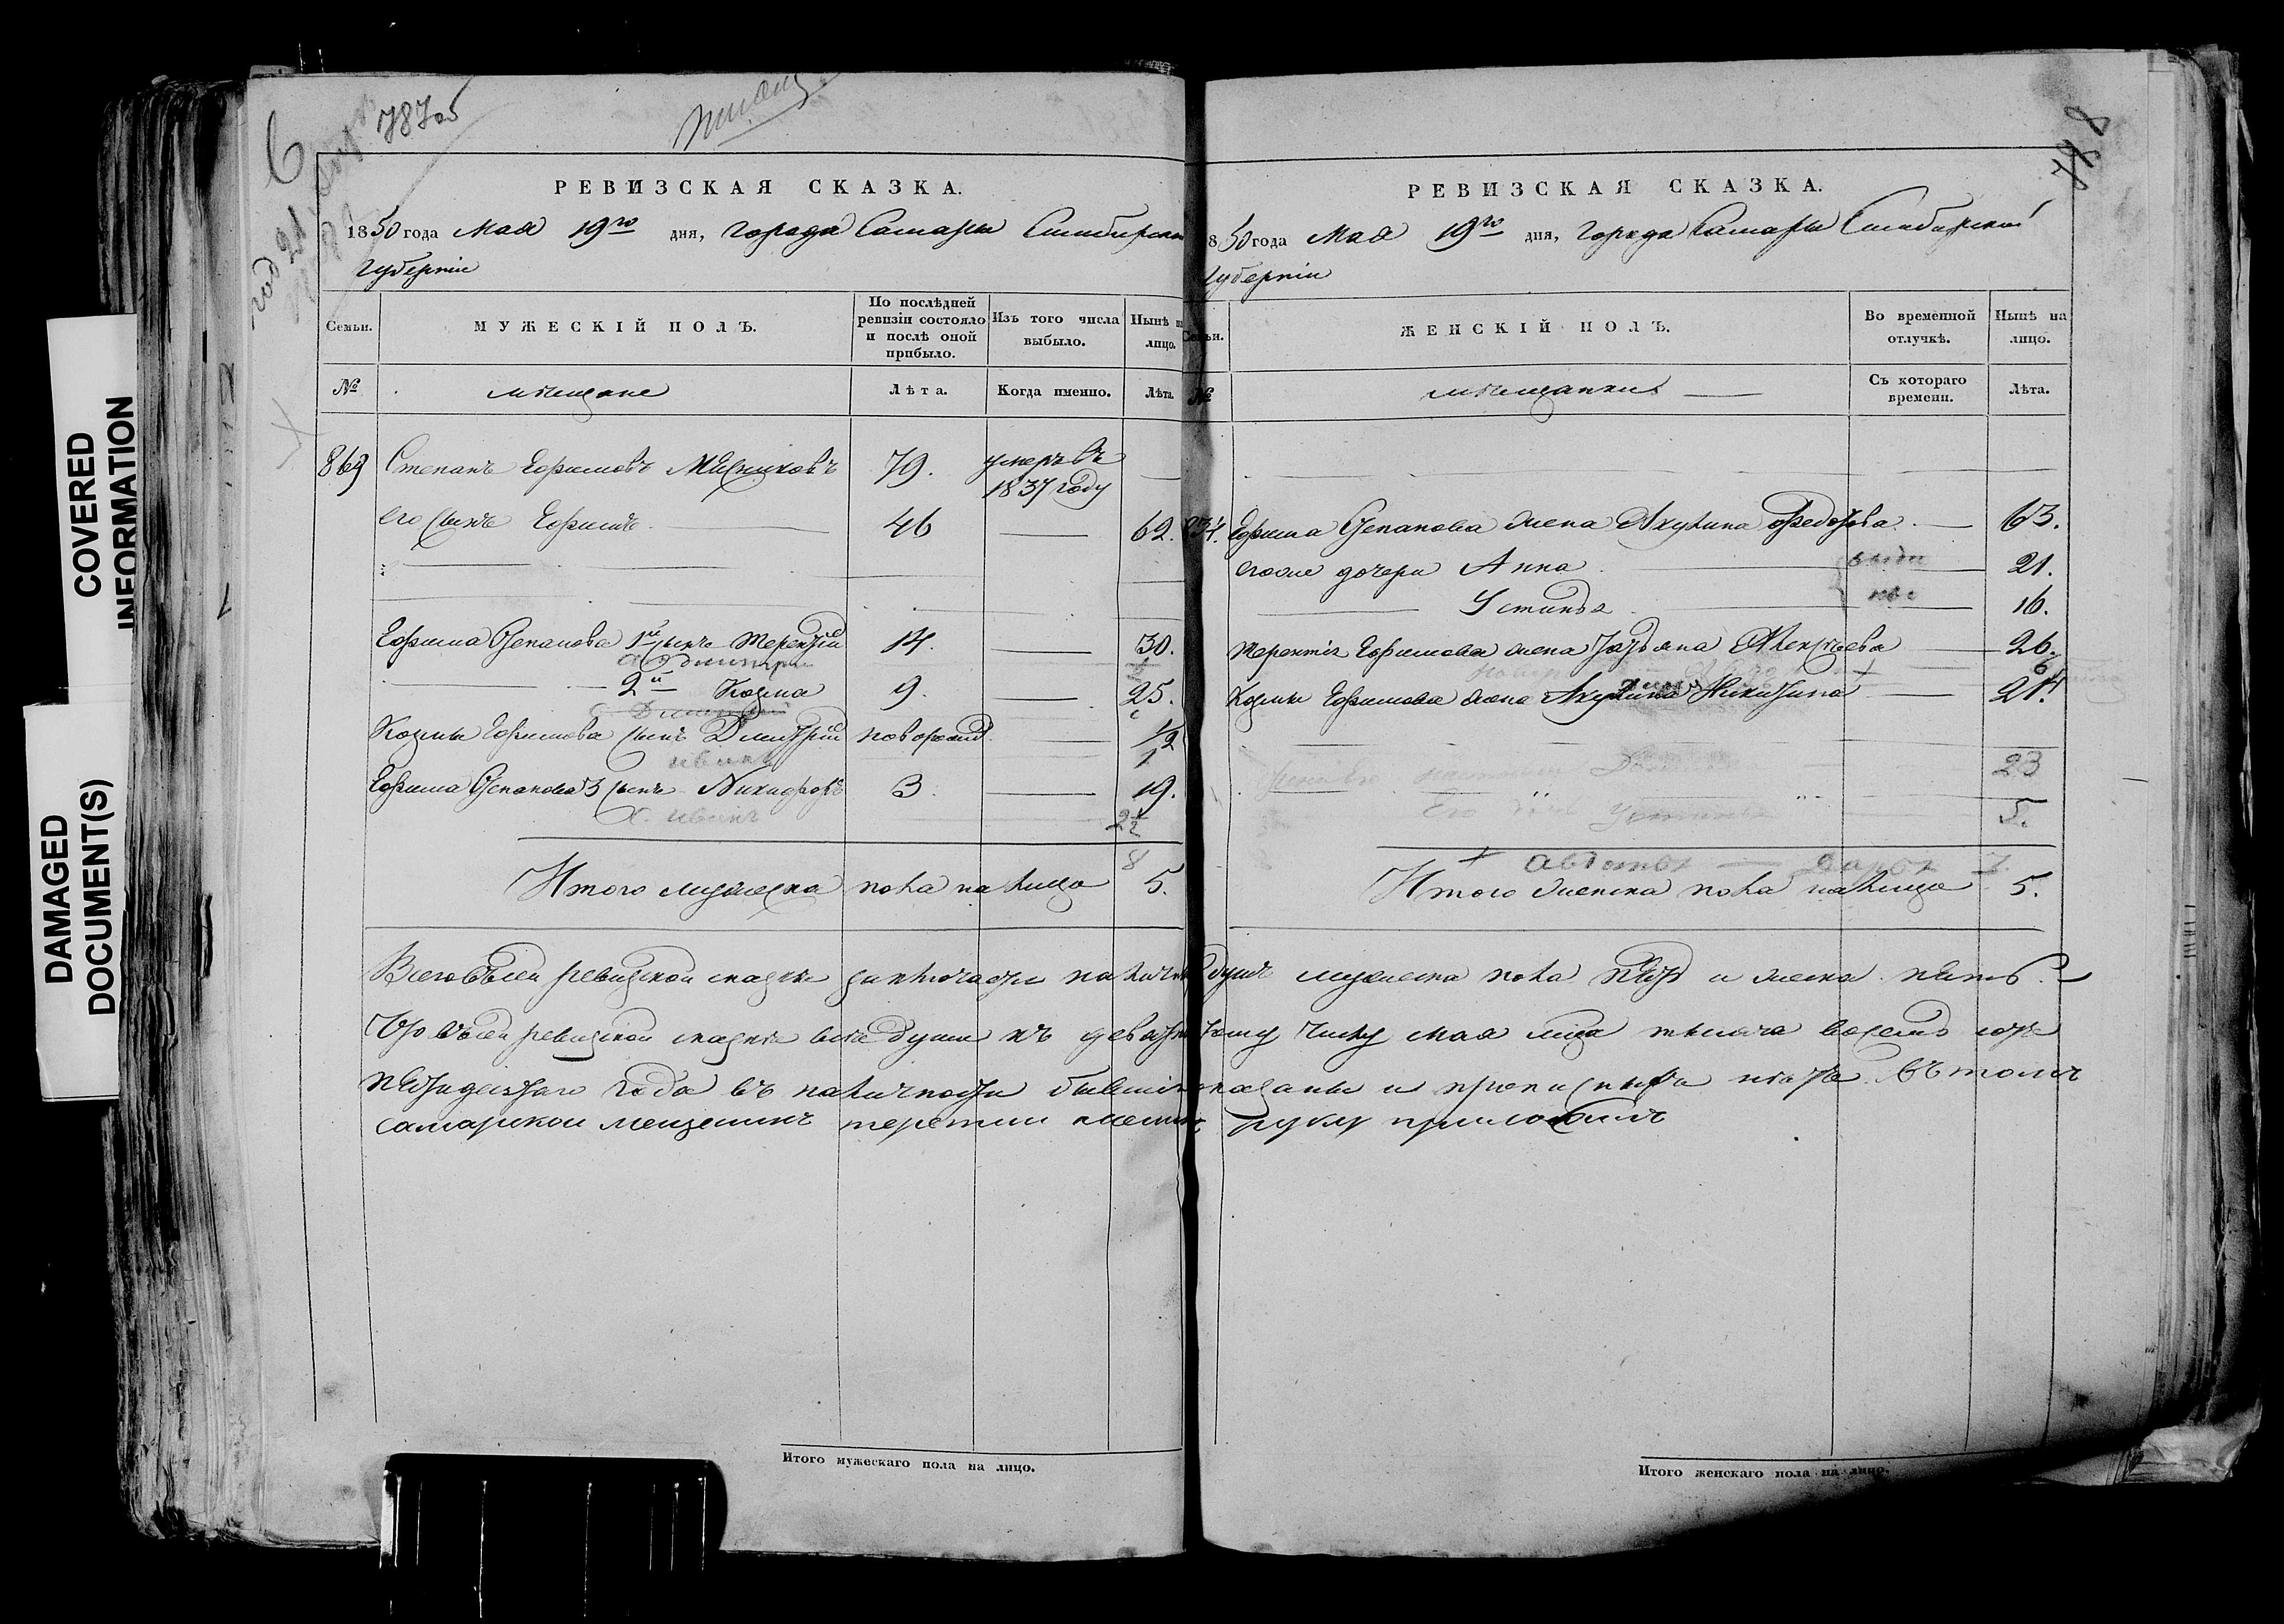 COVERED
INFORMATION
DAMAGED
DOCUMENT(S)
6
787об
РЕВИЗСКАЯ СКАЗКА.
1850 года Мая 19го дня, города Самары Симбирской
Губернiи
Семьи.
МУЖЕСКIЙ ПОЛЪ.
По послѣдней ревизiи состояло и послѣ оной прибыло.
Изъ того числа выбыло.
Нынѣ на лицо.
№
мѣщане
Лѣта.
Когда именно.
Лѣта.
869 Степанъ Ефимовъ Мясниковъ 79. умеръ въ
1837 году
его сынъ Ефимъ 46 62.
Ефима Степанова 1й сынъ Терентiй 14. 30.
2й Козма 9. 25.
Козмы Ефимова сынъ Дмитрiй новорожд. 1/2
иванъ
Ефима Степанова 3 сынъ Никифоръ 3. 19.
иванъ 2 1/2
8
Итого мужеска пола на лицо 5.
Итого мужескаго пола на лицо.
788
РЕВИЗСКАЯ СКАЗКА.
850 года Мая 19го дня, города Самары Симбирской
Губернiи
Семьи.
ЖЕНСКIЙ ПОЛЪ.
Во временной отлучкѣ.
Нынѣ на лицо.
№
мѣщанки
Съ котораго времени.
Лѣта.
Ефима Степанова жена Акулина Федорова 63.
дочери Анна 21.
Устинья 16.
Терентiя Ефимова жена Татьяна Алексѣева 26.
Козмы Ефимова жена Акулина Никитина 21.
23
5.
Итого женска пола на лицо 5.
Всего въ сей ревизской сказкѣ заключается на лицо душъ мужеска пола пять и женска пять.
Что въ сей ревизской сказкѣ всѣ души къ девятнадцатому числу мая мца тысяча восемь сотъ
пятидесятаго года въ наличности бывшiя показаны и прописныхъ нѣтъ. Въ томъ
самарской мещенинъ руку приложилъ
Итого женскаго пола на лицо.